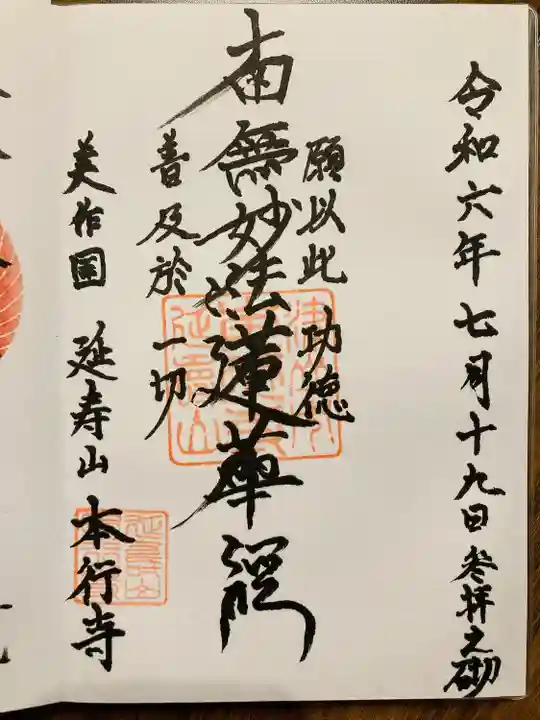 令和六年七月十九日参拝之砌
願以此功徳
南無妙法蓮華経
普及於一切
美作国 延寿山 本行寺